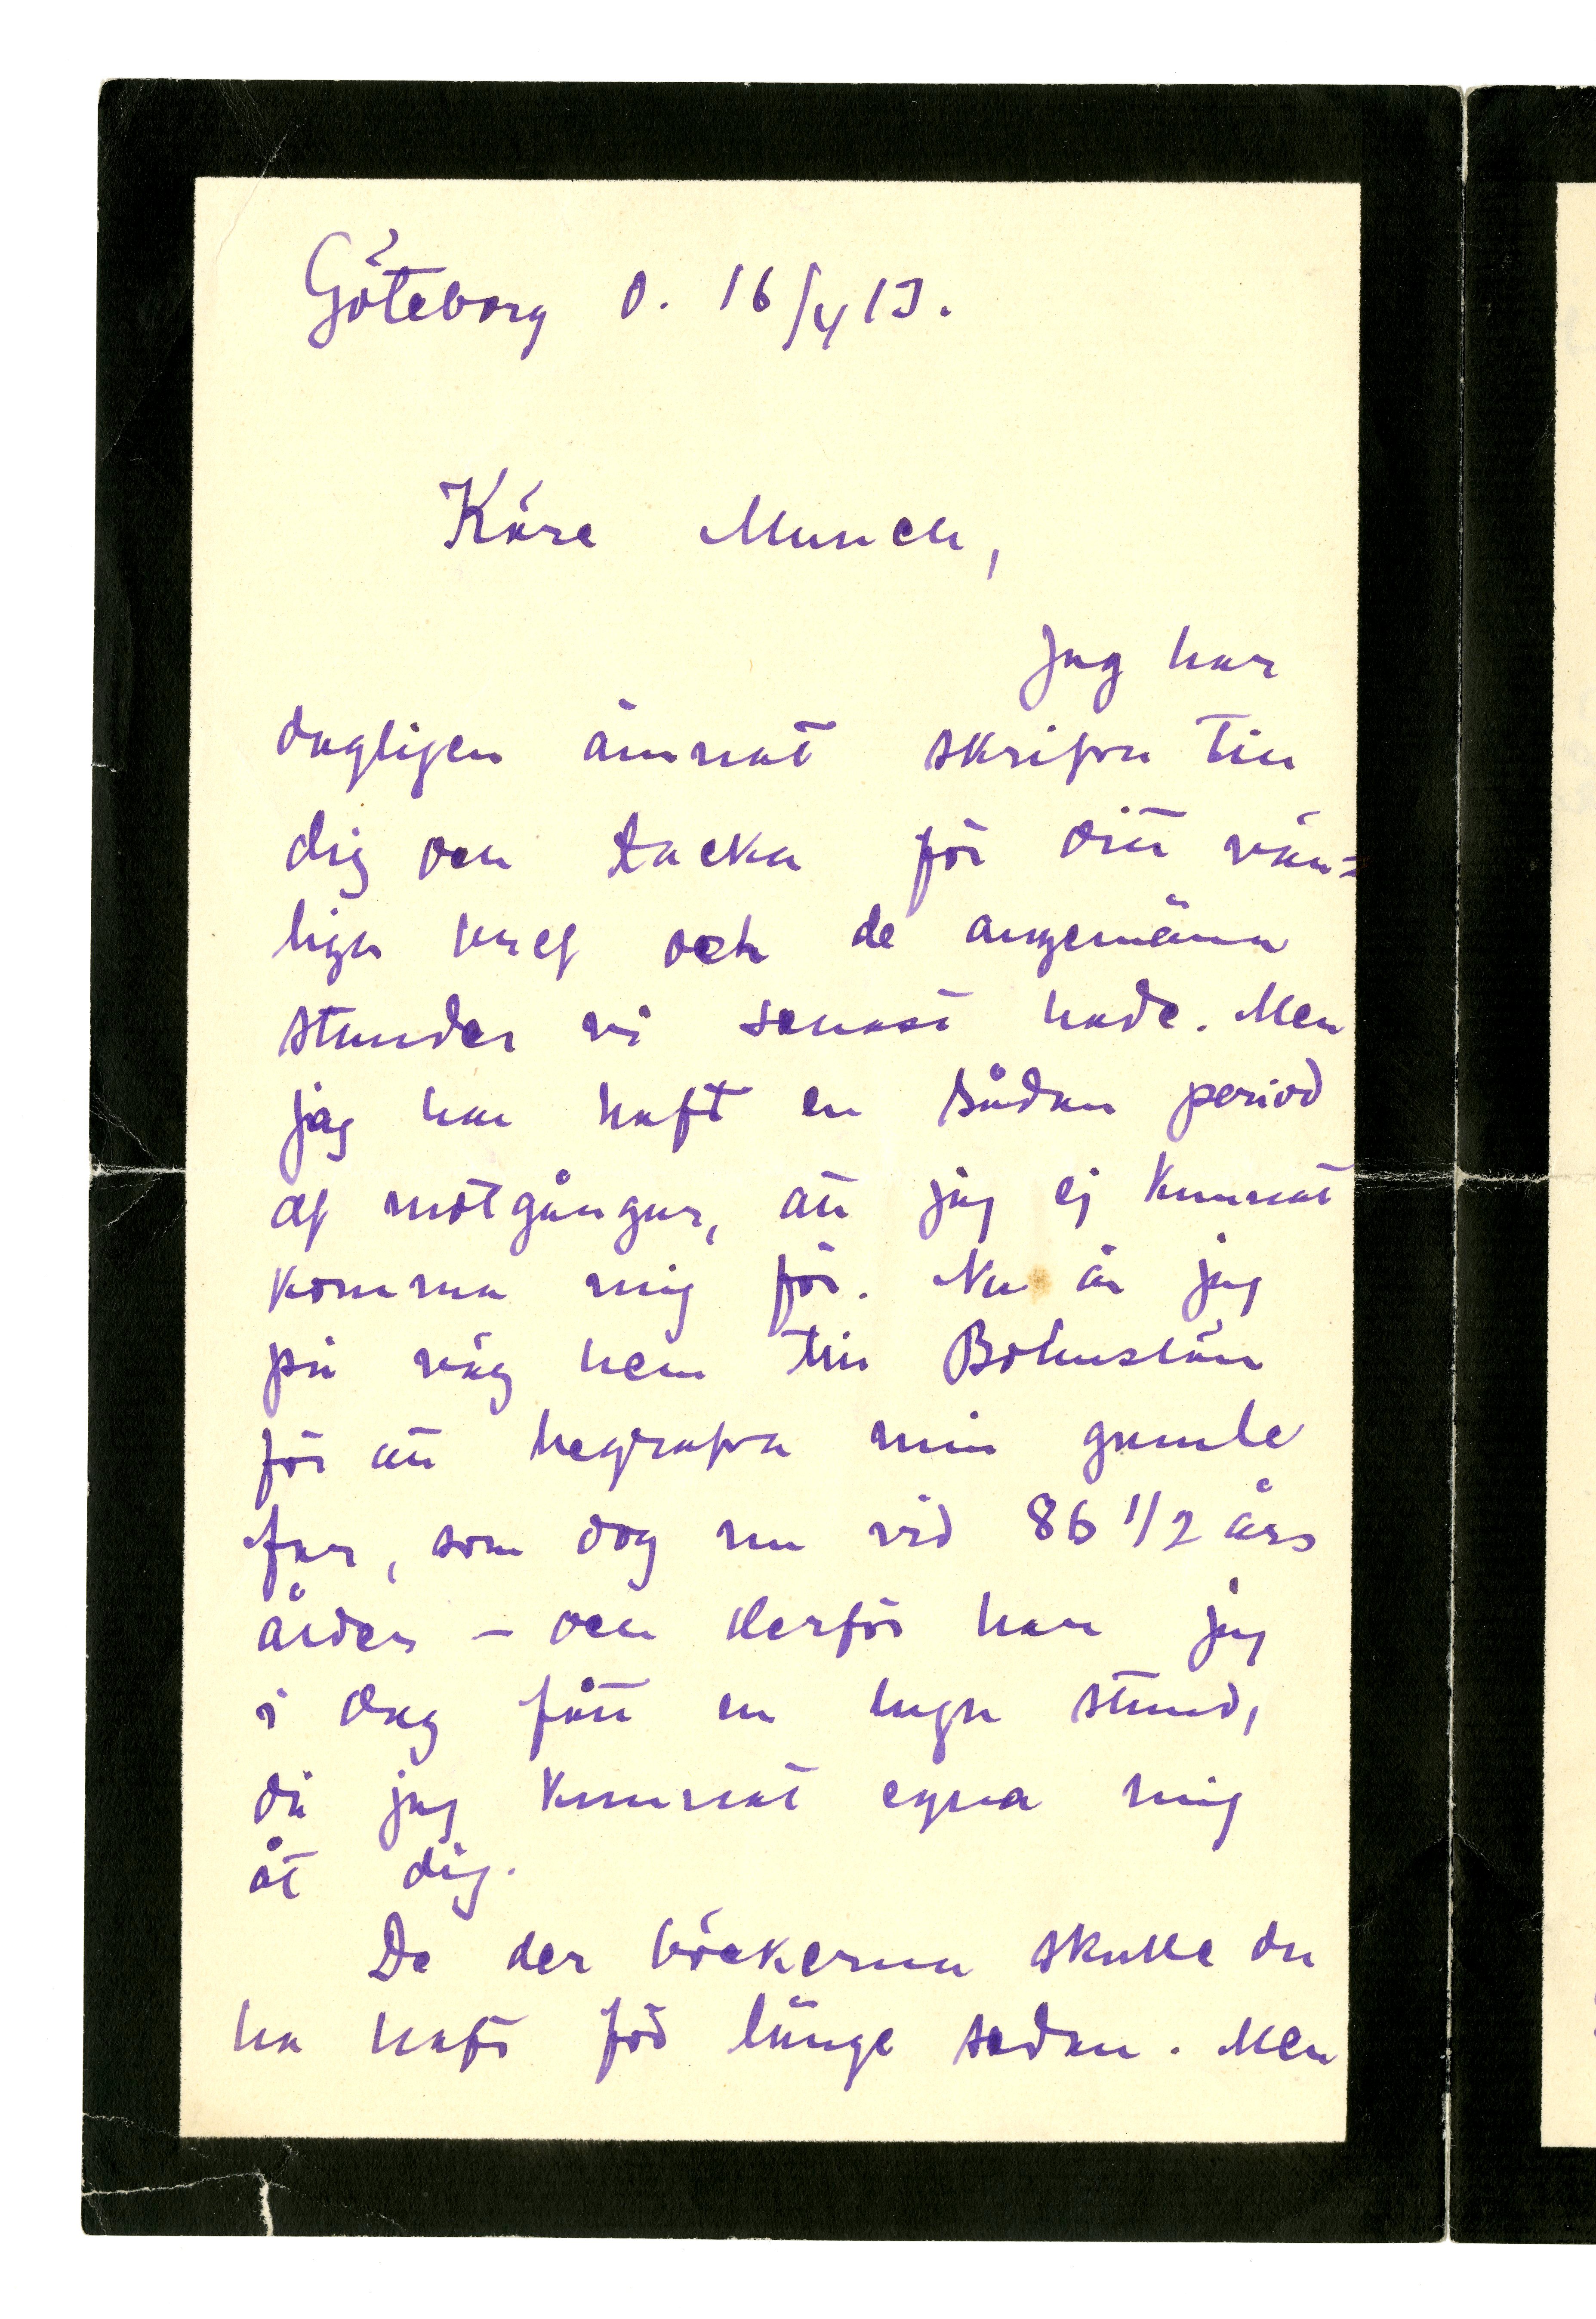 Göteborg d. 16/4 13.
Käre Munch,
Jag har
dagligen ämnat skrifva till
dig och tacka för ditt vän=
liga bref och de angenäma
stunder vi senast hade. Men
jag har haft en sådan period
af motgångar, att jag ej kunnat
komma mig för. Nu är jag
på väg hem till Bohuslän
för att begrafva min gamle
far, som dog nu vid 86 1/2 års
ålder – och derför har jag
i dag fått en lugn stund,
då jag kunnat egna mig
åt dig.
De der böckerna skulle du
ha haft för länge sedan. Men